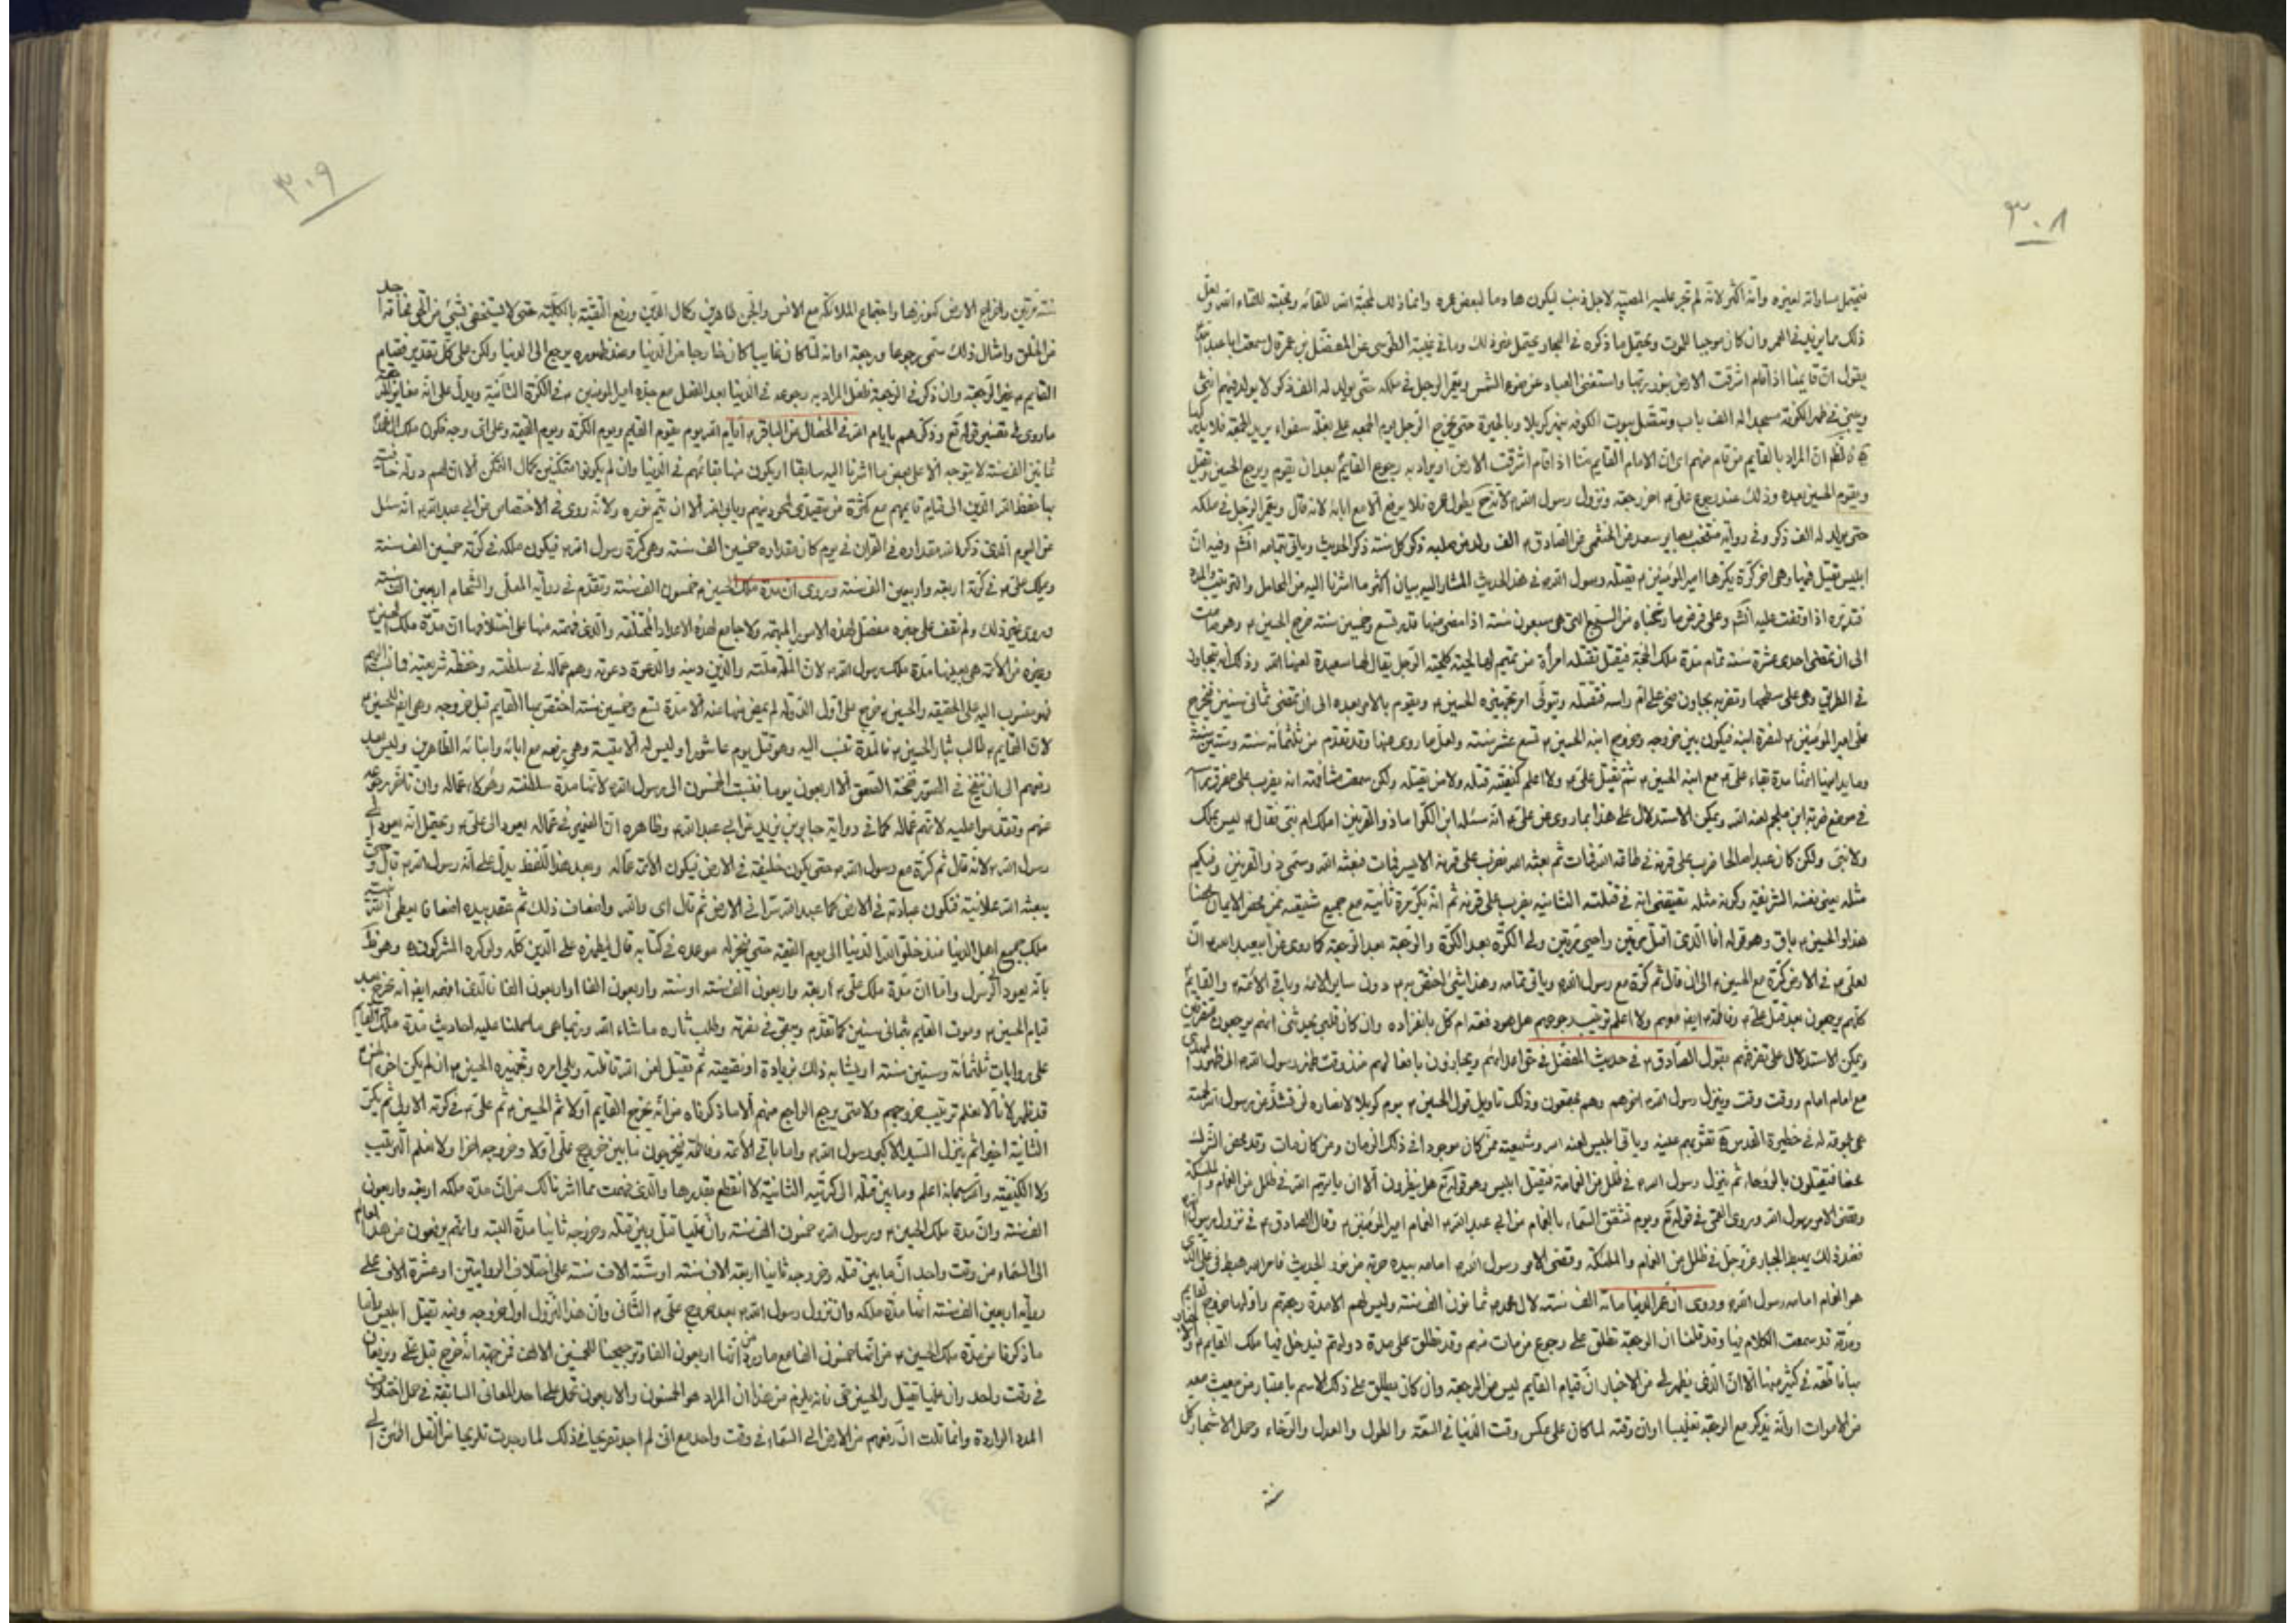 ٣٠٨
فيحتمل مساواته لغيره وانه اكثر لانه لم تجر عليه المصيبة لاجل ذنب ليكون هادما لبعض عمره وانما ذلك لمحبة الله للقائه ومحبته للقاء الله ولعل
ذلك مما يزيد في العمر وان كان موجبا للموت ويحتمل ما ذكره في البحار ويحتمل غير ذلك وما في غيبة الطوسي عن المفضل بن عمر قال سمعت ابا عبد الله
يقول ان قايمنا اذا قام اشرقت الارض بنور ربها واستغنى العباد عن ضوء الشمس ويعمر الرجل في ملكه حتى يولد له الف ذكر لا يولد فيهم انثى
ويبنى في ظهر الكوفة مسجدا له الف باب وتتصل بيوت الكوفه بنهر كربلا وبالحيرة حتى يخرج الرجل يوم الجمعه على بغلة سفواء يريد الجمعة فلا يدركها
ان المراد بالقايم من قام منهم اى ان الامام القايم منا اذا قام اشرقت الارض او يراد به رجوع القايم بعد ان يقوم ويرجع الحسين ويقتل
ويقوم الحسين بعده وذلك عند رجوع على اخر رجعته ونزول رسول الله لانه ح يطول عمره فلا يرفع الا مع ابائه لانه قال ويعمر الرجل في ملكه
حتى يولد له الف ذكر وفي رواية منتخب بصاير سعد عن الخثعمي عن الصادق الف ولد من صلبه ذكر كل سنة ذكر الحديث وياتي بتمامه انشم وفيه ان
ابليس يقتل فيها وهى اخر كرة يكرها امير المؤمنين يقتله رسول الله في هذا الحديث المشار اليه بيان اكثر ما اشرنا اليه من المحامل والترتيب والمدة
فتدبره اذا وقفت عليه انشم وعلى فرض ما رجحناه من السبع التي هى سبعون سنة اذا مضى منها قدر تسع وخمسين سنة خرج الحسين وهو صامت
الى ان تمضى احدى عشرة سنة تمام مدة ملك الحجة فيقتل تقتله امرأة من تميم لها لحية كلحية الرجل يقال لها سعيدة لعنها الله وذلك انه يتجاوز
في الطريق وهى على سطحها وتضربه بجاون صخر على ام راسه فتقتله ويتولى امر تجهيزه الحسين ويقوم بالامر بعده الى ان تمضى ثمانى سنين فيخرج
على امير المؤمنين لنصرة ابنه فيكون بين خروجه وخروج ابنه الحسين تسع عشر سنة ولعل ما روى عنها وقد تقدم من ثلثمائة سنة وستين سنة
وما يدانيها انها مدة بقاء على مع ابنه الحسين ثم يقتل على ولا اعلم كيفية قتله ولا من يقتله ولكن سمعت مشافهة انه يضرب على مفرق راسه
في موضع ضربة ابن ملجم لعنه الله ويمكن الاستدلال على هذا بما روى عن على انه سئله ابن الكوا ما ذو القرنين املك ام نبى فقال ليس بملك
ولا نبى ولكن كان عبدا صالحا ضرب على قرنه في طاعة الله فمات ثم بعثه الله فضرب على قرنه الايسر فمات فبعثه الله وسمى ذو القرنين وفيكم
مثله يعنى نفسه الشريفة وكونه مثله يقتضى انه في قتلته الثانية يضرب على قرنه ثم انه يكر مرة ثانية مع جميع شيعته ممن محض الايمان محضا
هذا والحسين باق وهو قوله انا الذى اقتل مرتين واحيى مرتين ولى الكرة بعد الكرة والرجعة بعد الرجعة كما روى عن ابيعبد الله ان
لعلى في الارض كرة مع الحسين الى ان قال ثم كرة مع رسول الله وياتى بتمامه وهذا شئ اختص به دون ساير الائمة وباقى الائمة والقايم
كلهم يرجعون بعد قتل على وفاطمة ايضا معهم ولا اعلم ترتيب رجوعهم هل هو دفعه ام كل بانفراده وان كان قلبى يحدثنى انهم يرجعون متفرقين
ويمكن الاستدلال على تفرقهم بقول الصادق في حديث المفضل في حق اعدائهم ويجازون بافعالهم منذ وقت ظهر رسول الله الى ظهور المهدى
مع امام امام ووقت وقت وينزل رسول الله اخرهم وهم مجتمعون وذلك تاويل قول الحسين يوم كربلا لانصاره لن تشذ عن رسول الله لحمته
هى مجموعة له في حظيرة القدس تقر بهم عينه وياتى ابليس لعنه الله وشيعته ممن كان موجودا في ذلك الزمان ومن كان مات وقد محض الشرك
محضا فيقتتلون بالروحاء ثم ينزل رسول الله في ظلل من الغمامة فيقتل ابليس وهو قوله تع هل ينظرون الا ان ياتيهم الله في ظلل من الغمام والملئكة
وقضى الامر رسول الله وروى القمى في قوله تع ويوم تشقق السماء بالغمام عن ابى عبد الله الغمام امير المؤمنين وقال الصادق في نزول رسول الله
فعند ذلك يهبط الجبار عز وجل في ظلل من الغمام والملئكة وقضى الامر رسول الله امامه بيده حربة من نور الحديث فامر الله هبط في على الذى
هو الغمام امامه رسول الله وروى ان عمر الدنيا مائة الف سنة لال محمد ثمانون الف سنة وليس لهم الا مدة رجعتهم واولها خروج القايم
ومدته قد سمعت الكلام فيها وقد قلنا ان الرجعة تطلق على رجوع من مات منهم وقد تطلق على مدة دولتهم فيدخل فيها ملك القايم
بياناتهم في كثير منها الا ان الذى يظهر لى من الاخبار ان قيام القايم ليس من الرجعة وان كان يطلق على ذلك الاسم باعتبار من يبعث معه
من الاموات او انه يذكر مع الرجعة تغليبا او ان وقته لما كان على عكس وقت الدنيا في السعة والطول والعدل والرخاء وحمل الاشجار كل
سنة
٣٠٩
سنة مرتين واخراج الارض كنوزها واجتماع الملائكة مع الانس والجن ظاهرين وكمال الدين ورفع التقية بالكلية حتى لا يستخفى بشئ من الحق مخافة احد
من الخلق وامثال ذلك سمى رجوعا ورجعة او انه لما كان غايبا كان خارجا من الدنيا وعند ظهوره يرجع الى الدنيا ولكن على كل تقدير فقيام
القايم غير الرجعة وان ذكر في الرجعة فلعل المراد به رجوعه في الدنيا بعد القتل مع جده امير المؤمنين في الكرة الثانية ويدل على انه مغاير للرجعة
ما روى في تفسير قوله تع وذكرهم بايام الله في الخصال عن الباقر ايام الله يوم يقوم القايم ويوم الكرة ويوم القيمة وعلى اى وجه فكون ملك ال محمد
ثمانين الف سنة لا يتوجه الا على بعض ما اشرنا اليه سابقا او يكون منها بقائهم في الدنيا وان لم يكونوا متمكنين كمال التمكن الا ان لهم دولة خاصة
بها حفظ الله الدين الى قيام قايمهم مع كثرة من يتصدى لمحو دينهم ويابى الله الا ان يتم نوره ولانه روى في الاختصاص عن ابى عبد الله انه سئل
عن اليوم الذى ذكر الله مقداره في القران في يوم كان مقداره خمسين الف سنة وهى كرة رسول الله فيكون ملكه في كرته خمسين الف سنة
ويملك على في كرته اربعة واربعين الف سنة وروى ان مدة ملك الحسين خمسون الف سنة وتقدم في رواية المعلى والشحام اربعين الف سنة
وروى غير ذلك ولم نقف على خبر مفصل لهذه الامور المبهمة ولا جامع لهذه الاعداد المختلفة والذى فهمته منها على اختلافها ان مدة ملك الحسين
وغيره من الائمة هى بعينها مدة ملك رسول الله لان الملة ملته والدين دينه والدعوة دعوته وهم عماله في سلطنته وحفظة شريعته فما نسب اليهم
فهو منسوب اليه على الحقيقة والحسين خرج على اول الدولة لم يمض منها عنه الا مدة تسع وخمسين سنة اختص بها القايم قبل خروجه وهى ايضا للحسين
لان القايم طالب بثار الحسين فالمدة تنسب اليه وهو قتل يوم عاشورا وليس له الا ميتة وهى يرفعه مع ابائه وابنائه الطاهرين وليس بعد
رفعهم الى ان ينفخ في الصور نفخة الصعق الا اربعون يوما فنسبت الخمسون الى رسول الله لانها مدة سلطنته وهؤلاء عماله وان تاخر رجوعه
عنهم وتقدموا عليه لانهم عماله كما في رواية جابر بن يزيد عن ابى عبد الله وظاهره ان الضمير في عماله يعود الى على ويحتمل انه يعود الى
رسول الله لانه قال ثم كرة مع رسول الله حتى يكون خليفة في الارض فيكون الائمة عماله وبعد هذا اللفظ يدل على انه رسول الله قال وحتى
يبعثه الله علانية فتكون عبادته في الارض كما عبد الله سرا في الارض ثم قال اى والله واضعاف ذلك ثم عقد بيده اضعافا يعطى الله نبيه
ملك جميع اهل الدنيا منذ خلق الله الدنيا الى يوم القيمة حتى ينجز له موعده في كتابه قال ليظهره على الدين كله ولو كره المشركون
بانه يعود الى الرسول واما ان مدة ملك على اربعة واربعون الف سنة او سنة واربعون الفا او اربعون الفا فالذى افهمه ايضا انه يخرج بعد
قيام الحسين وموت القايم بثمانى سنين كما تقدم ويبقى في نصرته وطلب ثاره ما شاء الله وربما هى ما حملنا عليه احاديث مدة ملك القايم
على روايات ثلثمائة وستين سنة او يشابه ذلك بزيادة او نقيصة ثم يقتل لعن الله قاتله ويلى امره وتجهيزه الحسين ان لم يكن اخوه الحسن
قد ظهر لانا لا نعلم ترتيب خروجهم ولا متى يرجع الراجع منهم الا ما ذكرناه من انه يخرج القايم اولا ثم الحسين ثم على في كرته الاولى ثم يكر
الثانية اخيرا ثم ينزل السيد الاكبر رسول الله واما باقى الائمة وفاطمة فيخرجون ما بين خروج على اولا وخروجه اخرا ولا نعلم الترتيب
ولا الكيفية والله سبحانه اعلم وما بين قتله الى كرته الثانية لا انقطع بقدرها والذى فهمت مما اشرنا لك من ان مدة ملكه اربعة واربعون
الف سنة وان مدة ملك الحسين ورسول الله خمسون الف سنة وان عليا قتل وبين قتله وخروجه ثانيا مدة البتة وانهم يرفعون من هذا العالم
الى السماء من وقت واحد ان ما بين قتله وخروجه ثانيا اربعة الاف سنة او ستة الاف سنة على اختلاف الروايتين او عشرة الاف على
رواية اربعين الف سنة انها مدة ملكه وان نزول رسول الله بعد خروج على الثانى وان هذا النزول اول خروجه وفيه تقتل ابليس
ما ذكرنا من مدة ملك الحسين من انها خمسون الفا مع ما ورد من انها اربعون الفا وترجيحنا للخمسين الالف فمن جهة انه خرج قبل على ويرفعان
في وقت واحد وان عليا يقتل والحسين حى فانه يلزم من هذا ان المراد هو الخمسون والاربعون تحمل على احد المعانى السابقة في حمل اختلاف
المدد الواردة وانما قلت ان رفعهم من الارض الى السماء في وقت واحد مع انى لم اجد تصريحا في ذلك لما وجدت تلويحا من النقل المستند الى